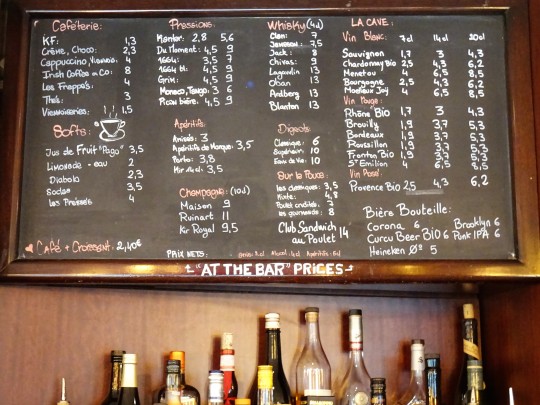 Caféterie:
KF: 1,3
Crème, Choco: 2,3
Cappuccino, Viennois: 4
Irish Coffee ou Co: 8
Les Frappés: 4
Thés: 3
Viennoiseries: 1,5
Softs:
Jus de Fruit "Pago" 3,5
Limonade - eau 2
Diabolo 2,3
Sodas 3,5
Les Pressés 4
♥ Café + Croissant: 2,40€
Pressions:
Meteor: 2,8 5,6
Du Moment: 4,5 9
1664: 3,5 7
1664 bl: 4,5 9
Grim: 4,5 9
Monaco, Tango: 3 6
Picon bière: 4,5 9
Apéritifs:
Anisés: 3
Apéritifs de Marque: 3,5
Porto: 3,8
Mir Mar: 3,5
Champagne: (10cl)
Maison 9
Ruinart 11
Kir Royal 9,5
PRIX NETS:
Whisky (4cl)
Clan: 7
Jameson: 7,5
Jack: 8
Chivas: 9
Lagavulin 13
Oban 13
Ardberg 13
Blanton 13
Digeos:
Classique: 6
Supérieur: 10
Eau de Vie: 10
Sur le Pouce:
Les classiques: 3,5
Mixte: 4,8
Poulet crudités: 5
Les gourmands: 8
Club Sandwich 14
au Poulet
LA CAVE:
Vin Blanc: 7cl 14cl 20cl
Sauvignon 1,7 3 4,3
Chardonnay Bio 2,5 4,3 6,2
Menetou 4 6,5 8,5
Bourgogne 2,5 4,3 6,2
Moelleux Joy 4 6,5 8,5
Vin Rouge:
Rhône Bio 1,7 3 4,3
Brouilly 1,9 3,7 5,3
Bordeaux 1,9 3,7 5,3
Roussillon 1,9 3,7 5,3
Fronton Bio 1,9 3,7 5,3
St Emilion 4 6,5 8,5
Vin Rosé:
Provence Bio 2,5 4,3 6,2
Bière Bouteille:
Corona 6 Brooklyn 6
Curcu Beer BIO 6 Punk IPA 6
Heineken 0° 5
"AT THE BAR" PRICES